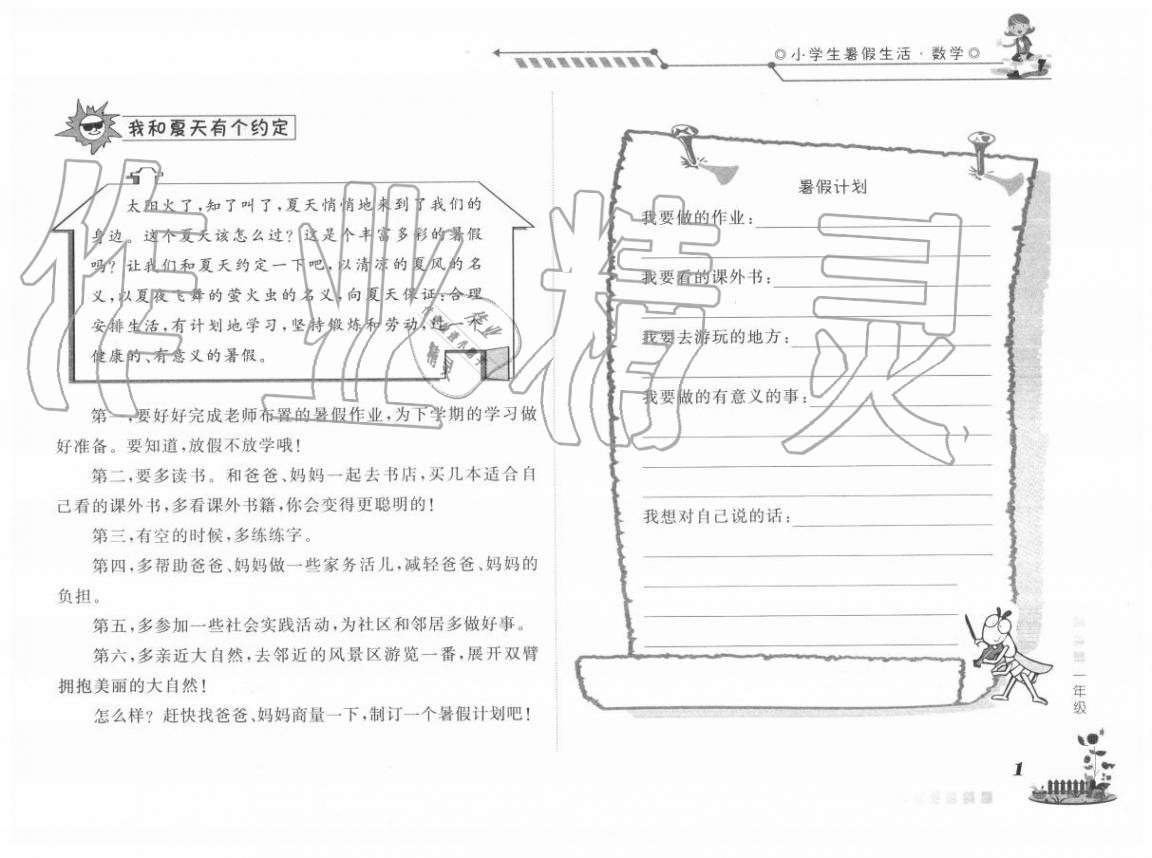 ◎小学生暑假生活·数学◎
我和夏天有个约定
太阳火了,知了叫了,夏天悄悄地来到了我们的
身边。这个夏天该怎么过？这是个丰富多彩的暑假
吗？让我们和夏天约定一下吧,以清凉的夏风的名
义,以夏夜飞舞的萤火虫的名义,向夏天保证:合理
安排生活,有计划地学习,坚持锻炼和劳动,过一个
健康的、有意义的暑假。
第一,要好好完成老师布置的暑假作业,为下学期的学习做
好准备。要知道,放假不放学哦！
第二,要多读书。和爸爸、妈妈一起去书店,买几本适合自
己看的课外书,多看课外书籍,你会变得更聪明的！
第三,有空的时候,多练练字。
第四,多帮助爸爸、妈妈做一些家务活儿,减轻爸爸、妈妈的
负担。
第五,多参加一些社会实践活动,为社区和邻居多做好事。
第六,多亲近大自然,去邻近的风景区游览一番,展开双臂
拥抱美丽的大自然！
怎么样？赶快找爸爸、妈妈商量一下,制订一个暑假计划吧！
暑假计划
我要做的作业:
我要看的课外书:
我要去游玩的地方:
我要做的有意义的事:
我想对自己说的话:
一年级
1
作业精灵
作业
精灵